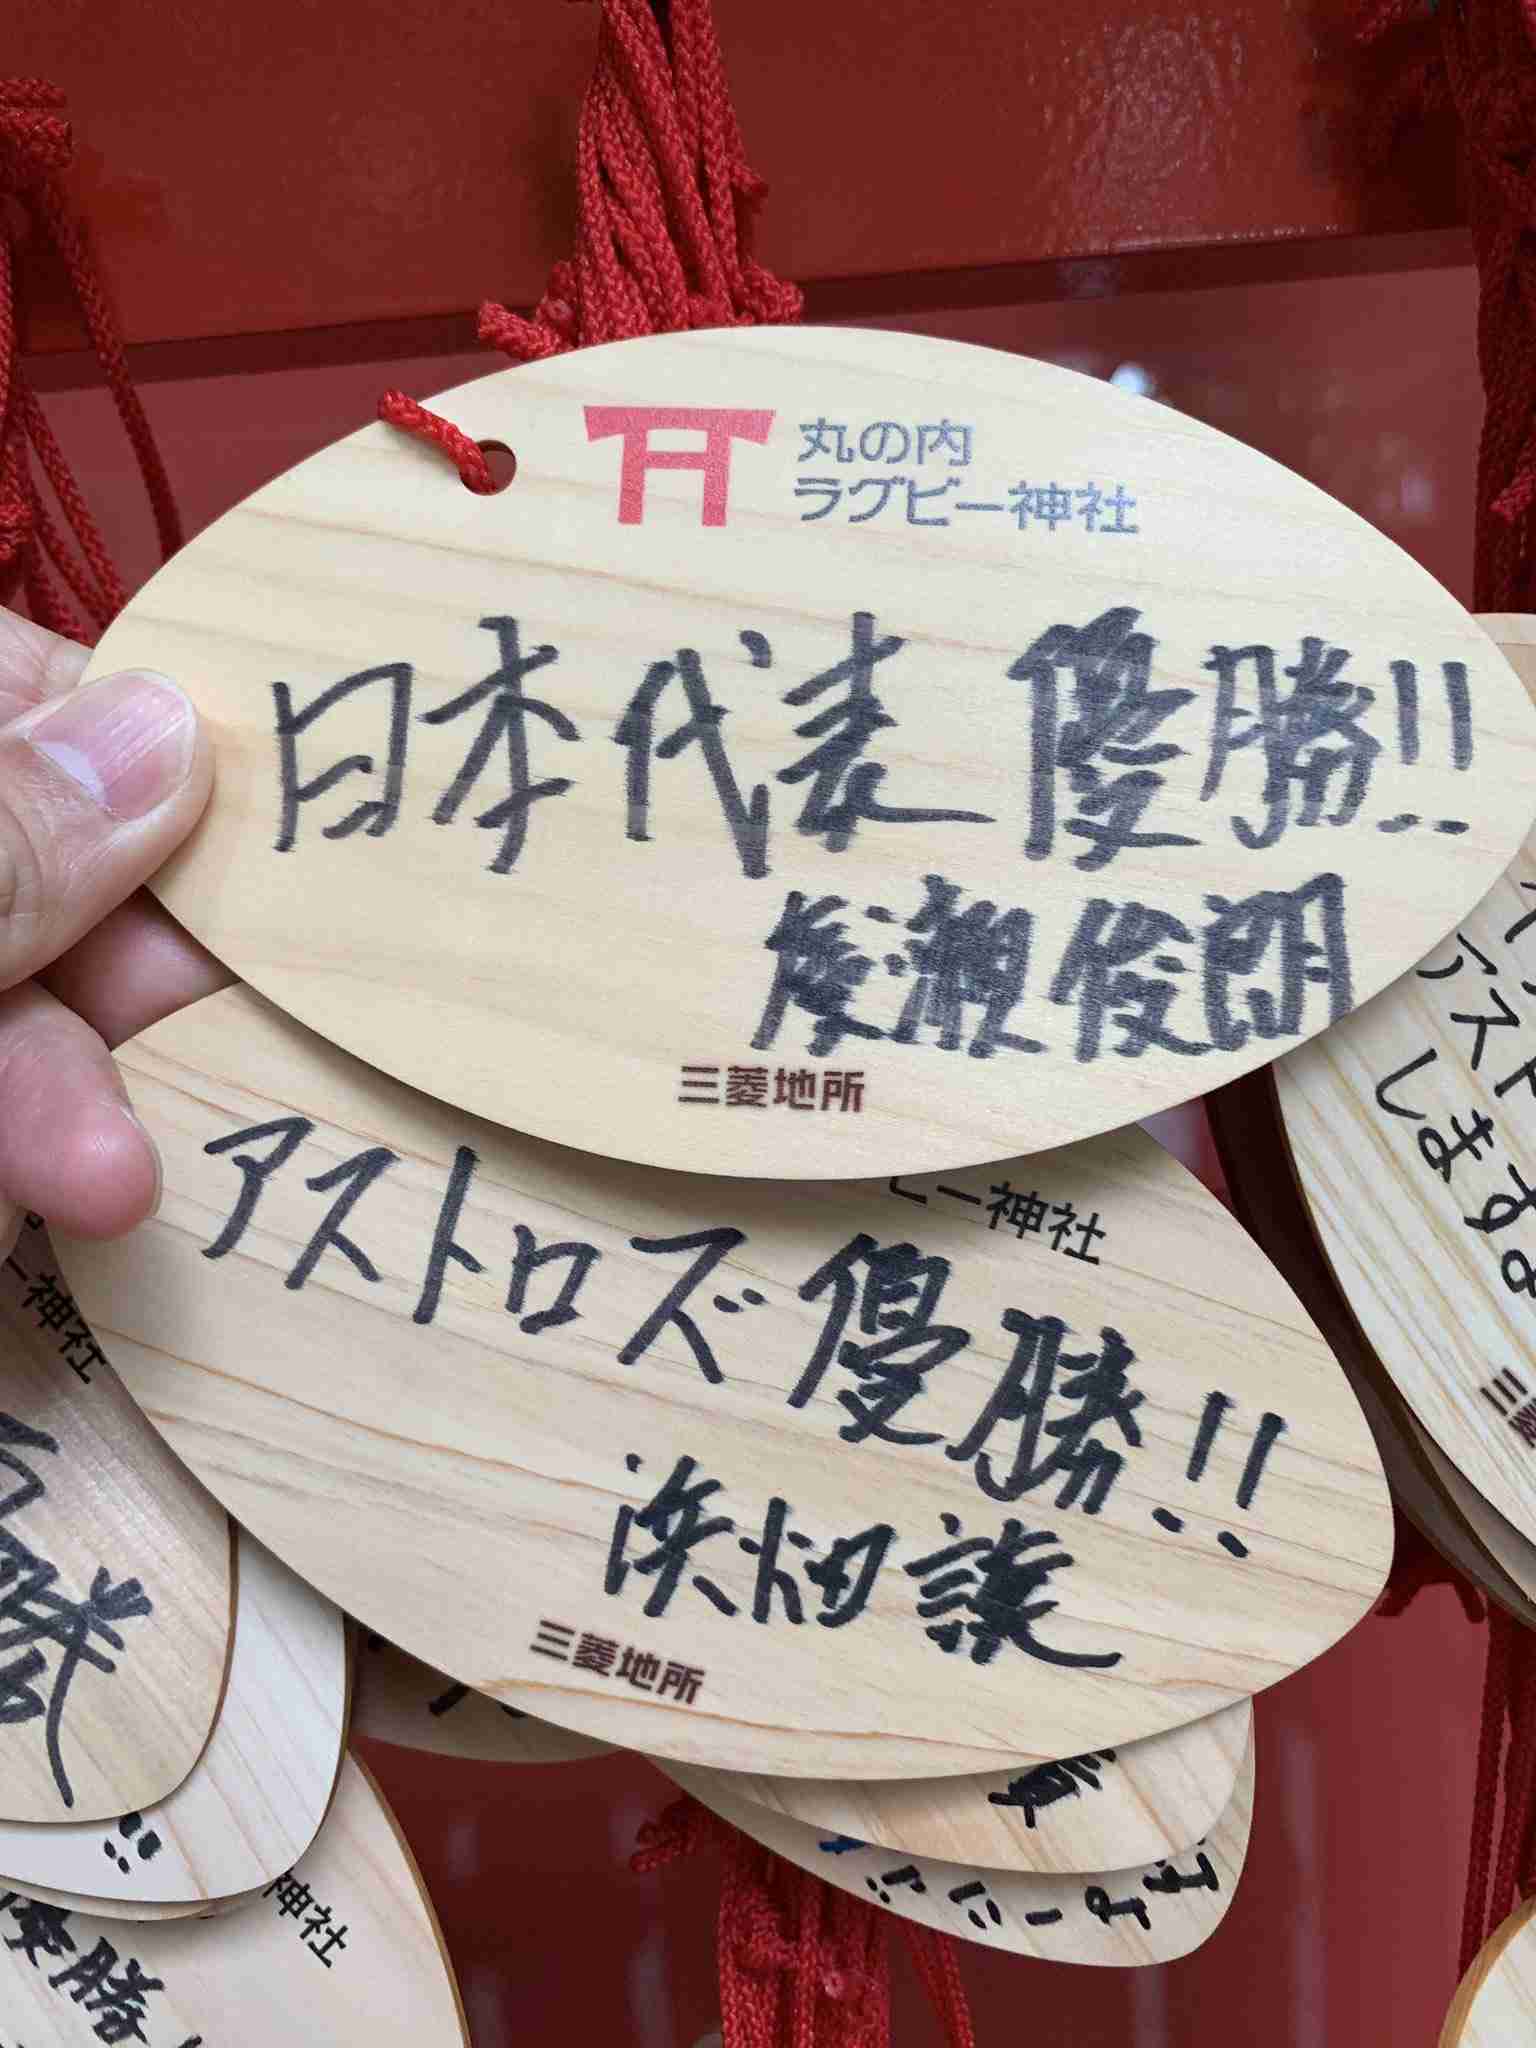 丸の内
ラグビー神社
日本代表 優勝!!
廣瀬俊朗
三菱地所
ビー神社
アストロズ優勝!!
浜畑譲
三菱地所
アスト
しますよ
三菱
ー神社
神社
優勝